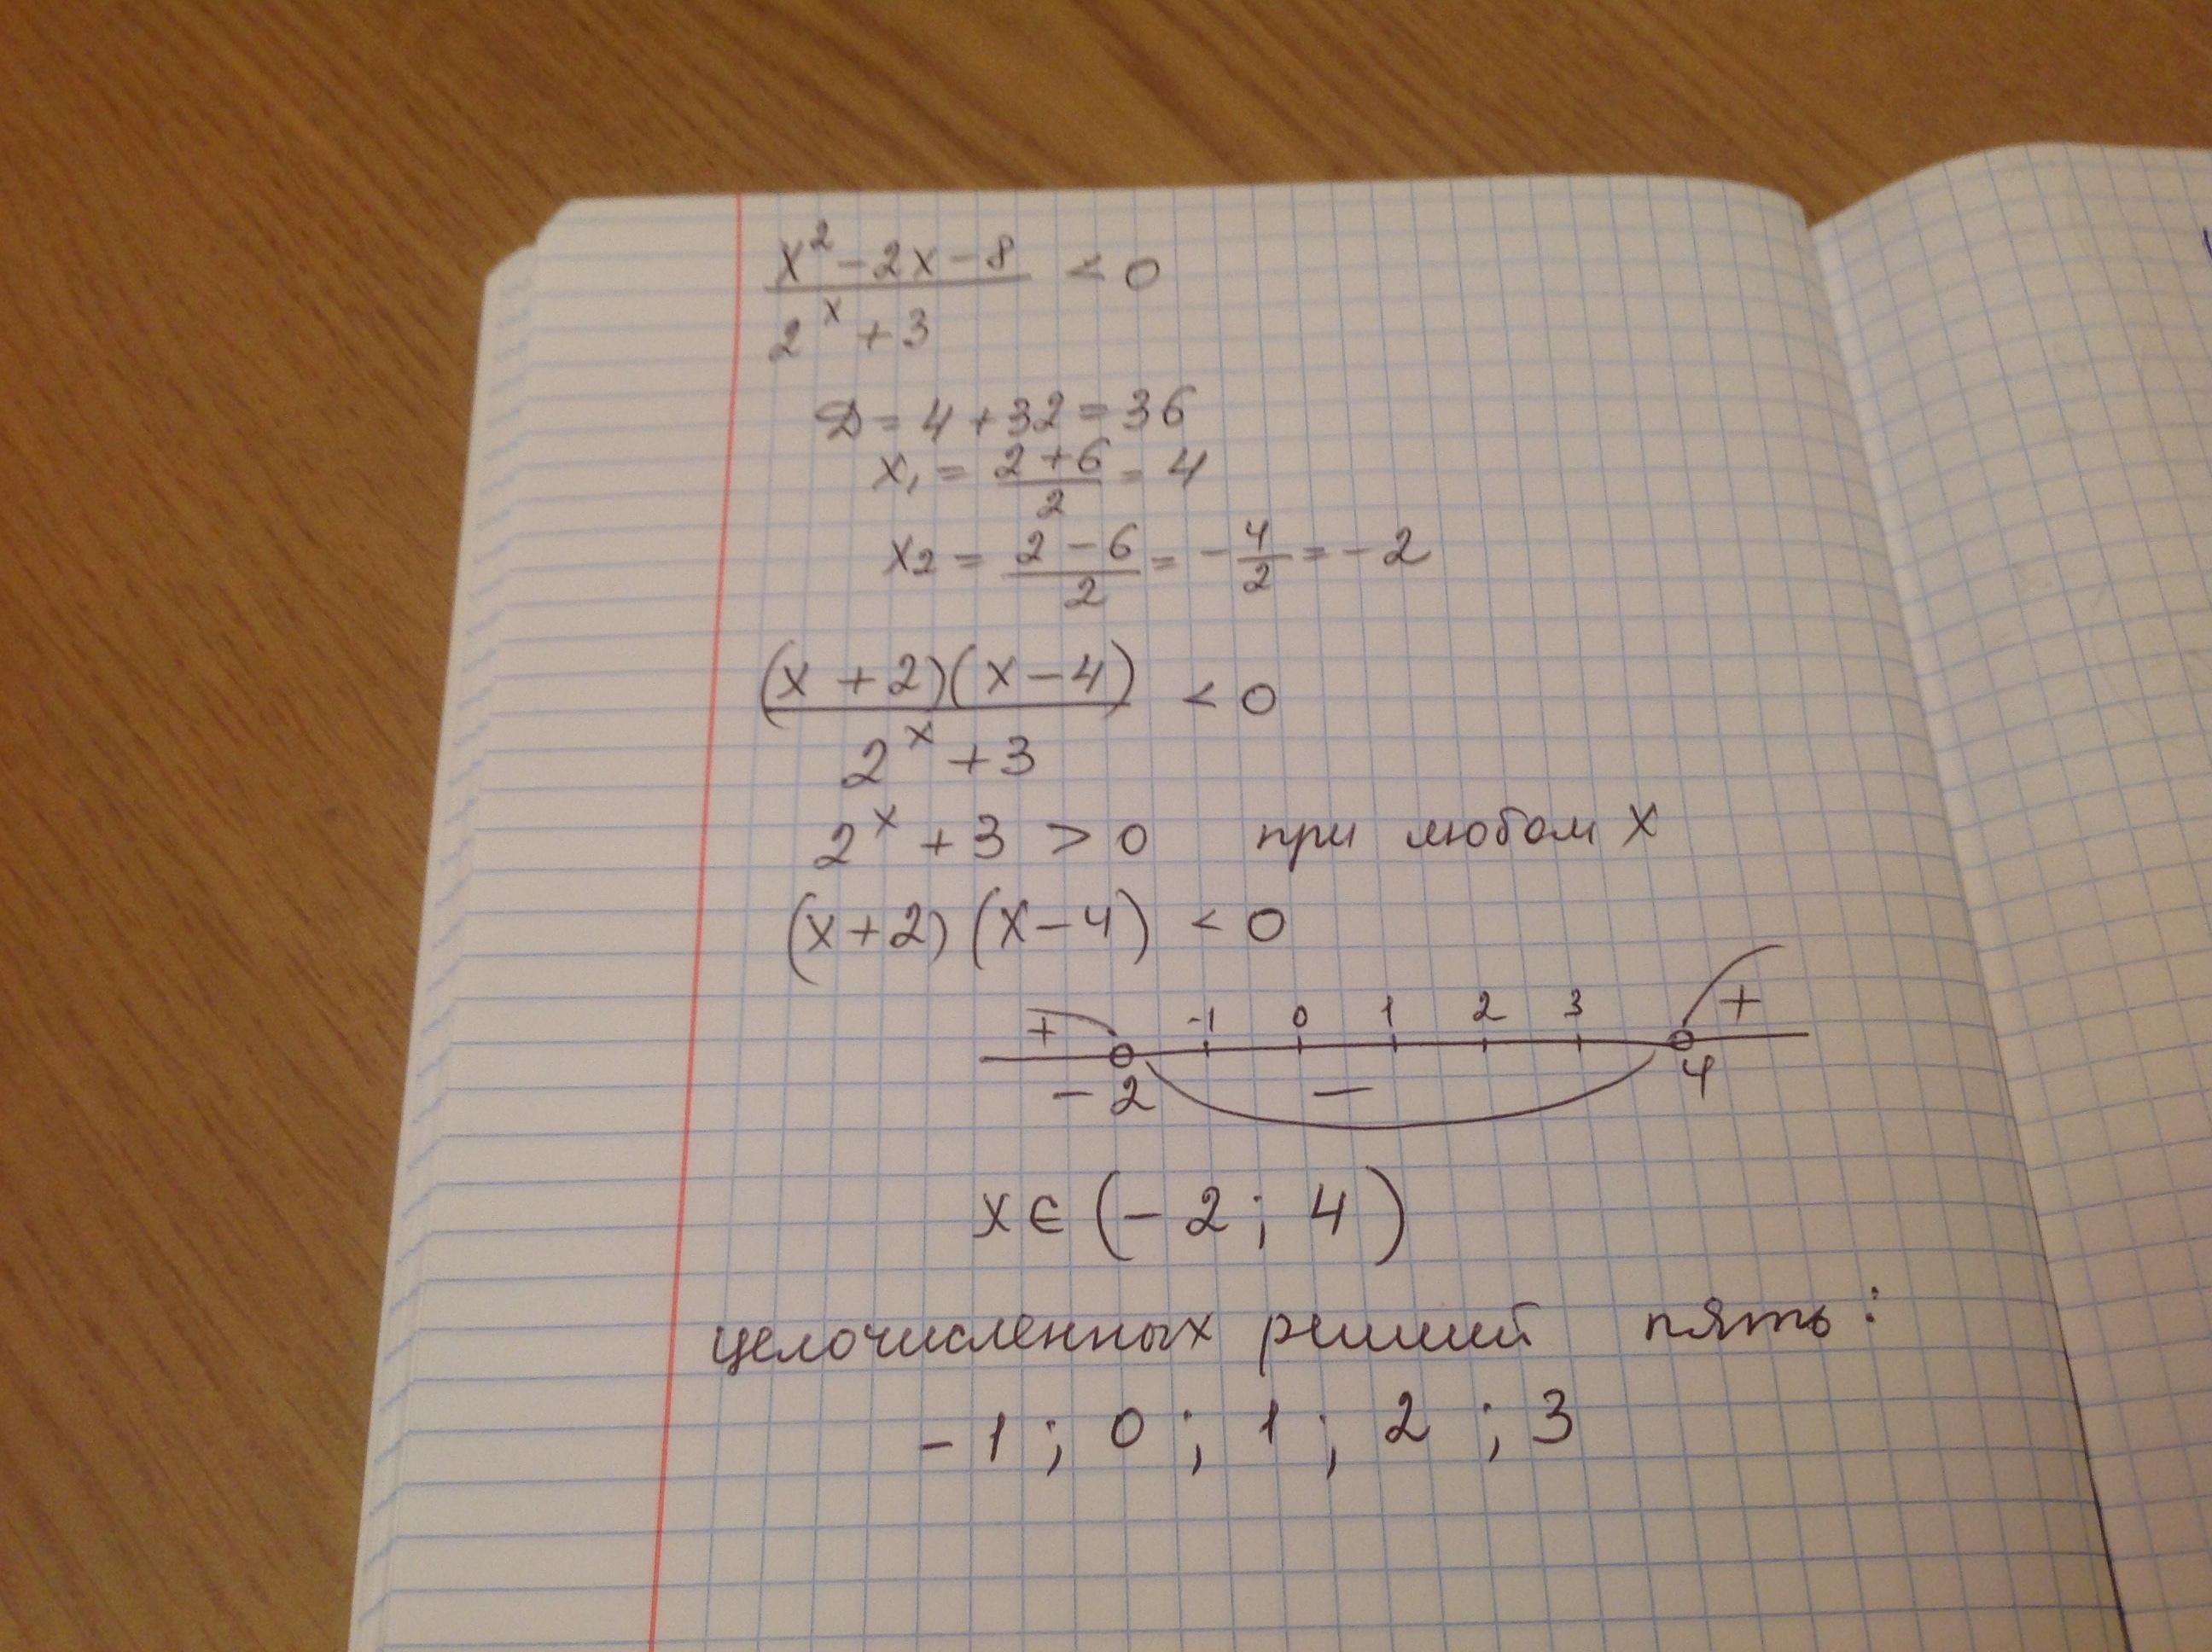 x² - 2x - 8 / 2ˣ + 3 < 0
D = 4 + 32 = 36
x₁ = 2 + 6 / 2 = 4
x₂ = 2 - 6 / 2 = - 4 / 2 = - 2
(x + 2)(x - 4) / 2ˣ + 3 < 0
2ˣ + 3 > 0 при любом x
(x + 2)(x - 4) < 0
+ -1 0 1 2 3 +
- 2 — 4
x ∈ (- 2; 4)
целочисленных пять:
- 1 ; 0 ; 1 ; 2 ; 3